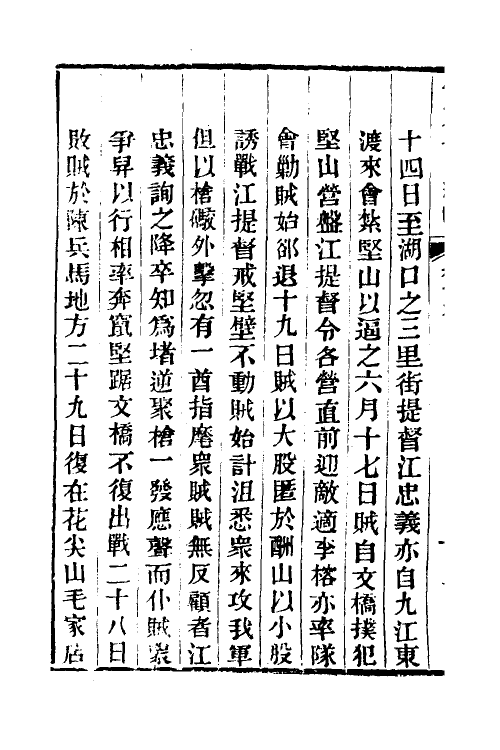 十四日至湖口之三里街提督江忠義亦自九江東
渡來會紮堅山以逼之六月十七日賊自文橋撲犯
堅山營盤江提督令各營直前迎敵適李榕亦率隊
會勦賊始卻退十九日賊以大股匿於酬山以小股
誘戰江提督戒堅壁不動賊始計沮悉衆來攻我軍
但以槍礮外擊忽有一酋指麾衆賊賊無反顧者江
忠義詢之降卒知爲堵逆聚槍一發應聲而仆賊衆
爭舁以行相率奔竄堅踞文橋不復出戰二十八日
敗賊於陳兵馬地方二十九日復在花尖山毛家店